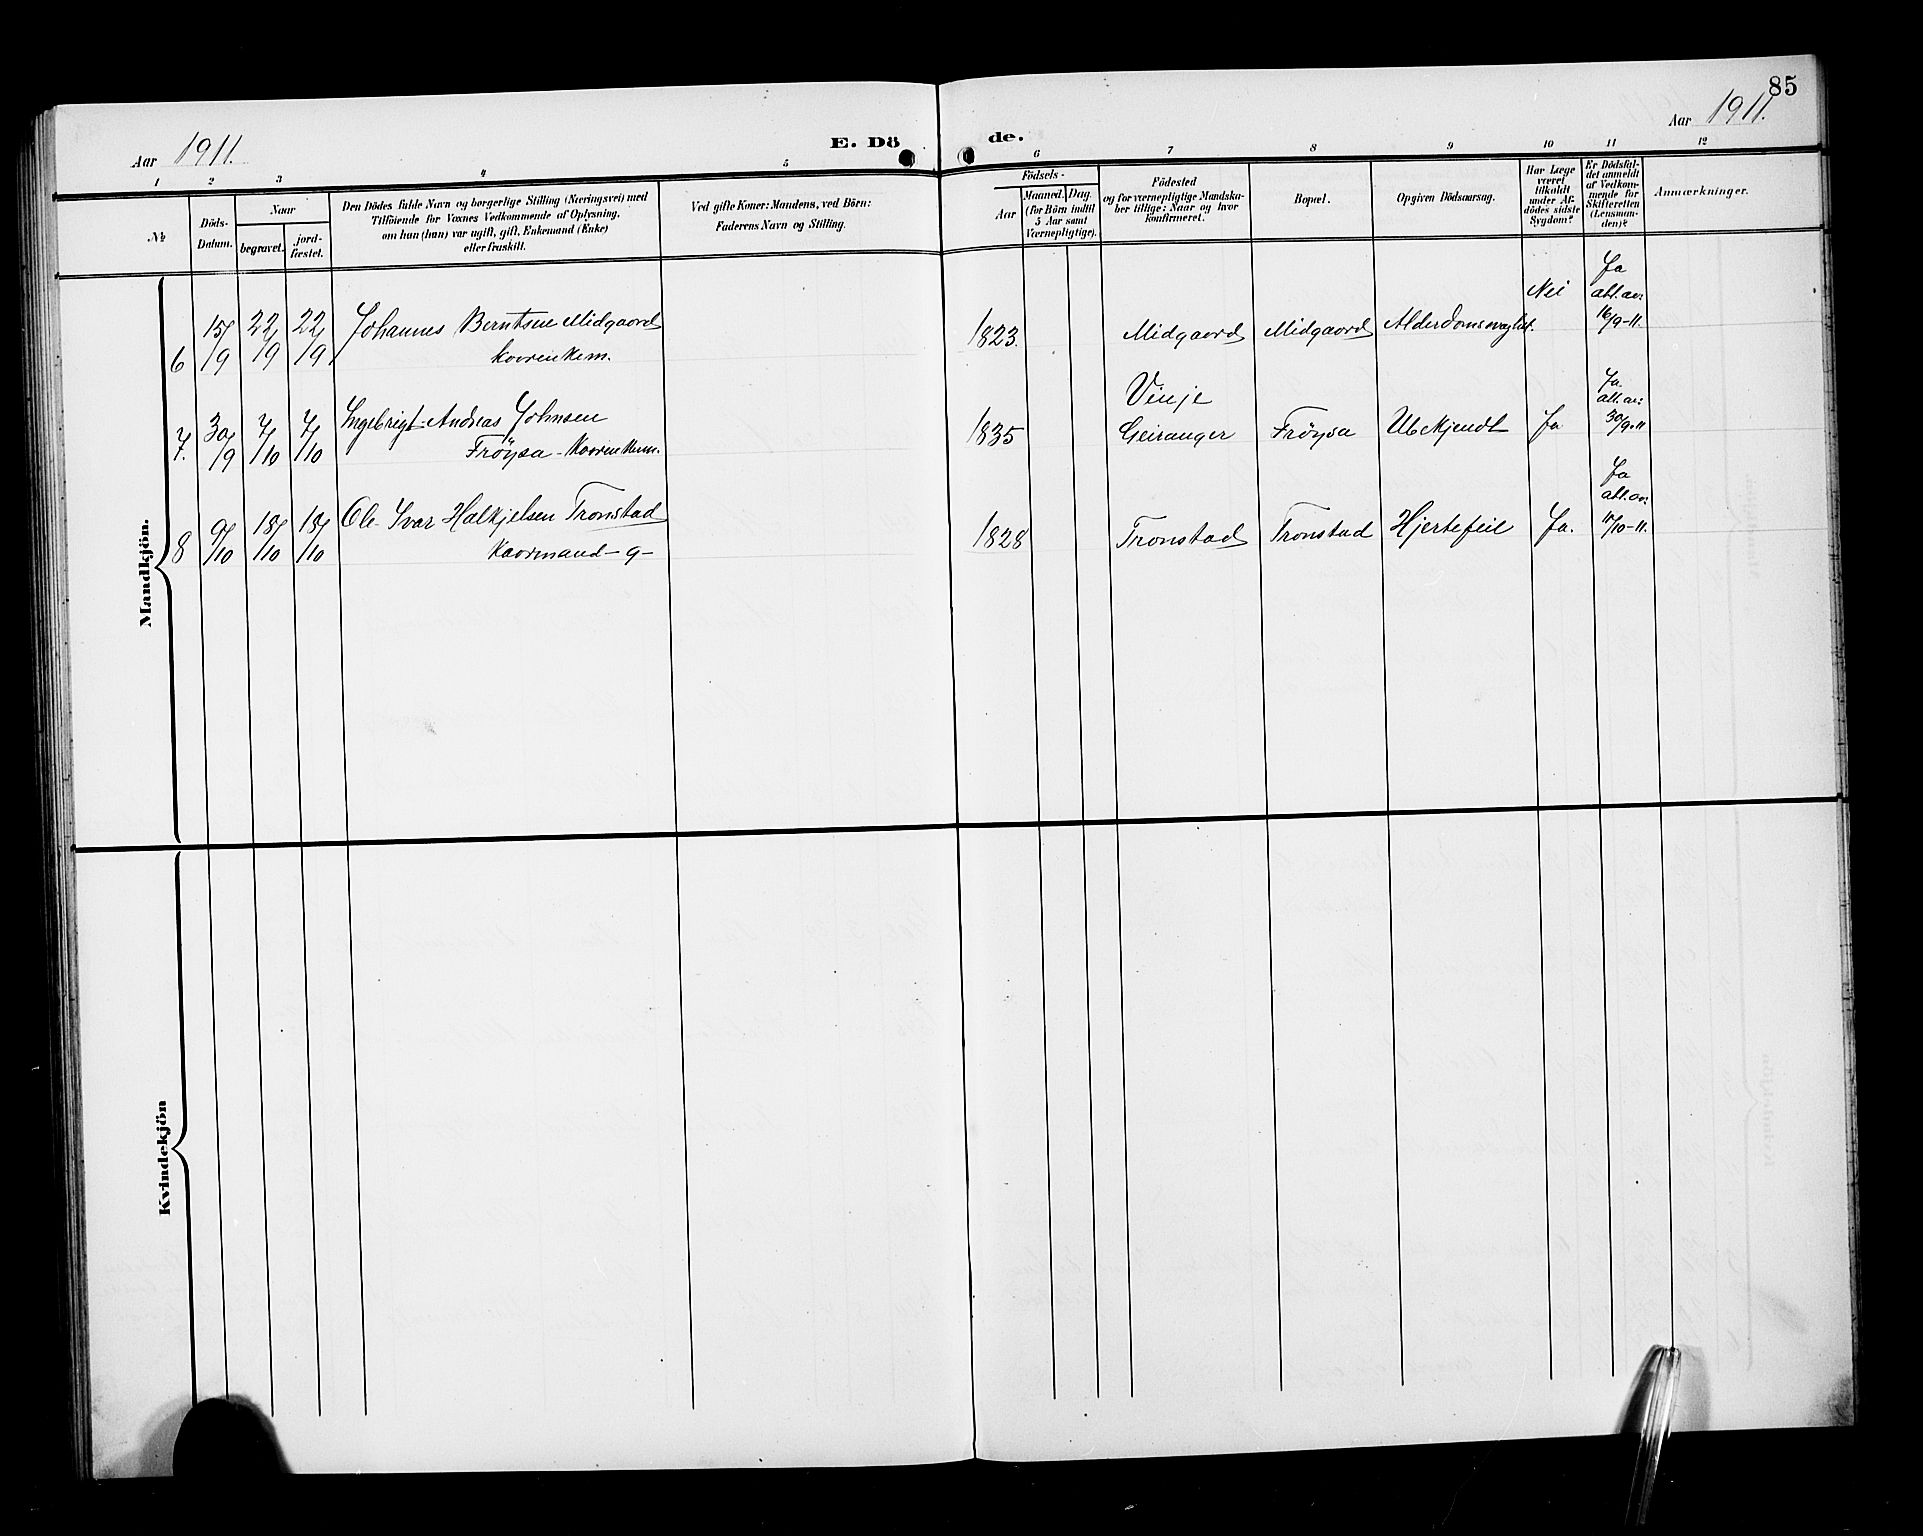 85
Aar 1911.
E. Dö
de.
Aar 1911.
1 2 3 4 5 6 7 8 9 10 11 12
№
Döds-
Datum.
Naar
begravet.
jord-
fæstet.
Den Dödes fulde Navn og borgerlige Stilling (Næringsvei) med
Tilföiende for Voxnes Vedkommende af Oplysning,
om han (hun) var ugift, gift, Enkemand (Enke)
eller fraskilt.
Ved gifte Koner: Mandens, ved Börn:
Faderens Navn og Stilling.
Födsels-
Aar
Maaned.
Dag.
(for Börn indtil
5 Aar samt
Værnepligtige).
Födested
og for værnepligtige Mandska-
ber tillige: Naar og hvor
konfirmeret.
Bopæl.
Opgiven Dödsaarsag.
Har Læge
været
tilkaldt
under Af-
dödes sidste
Sygdom?
Er Dödsfal-
det anmeldt
af Vedkom-
mende for
Skifteretten
(Lensman-
den)?
Anmærkninger.
Mandkjön.
6 15/9 22/9 22/9 Johannes Berntsen Midgaard
kaarenkem.
1823. Midgaard Midgaard Alderdomssvaghet. Nei
Ja
att. av:
16/9-11.
7. 30/9 7/10 7/10 Ingebrigt Andreas Johnsen
Fröysa - kaarenkem.
1835 Vinje
Geiranger Fröysa Ubekjendt Ja
Ja
att. av:
30/9-11
8 9/10 18/10 18/10 Ole Ivar Halkjelsen Tronstad
Kaarmand - g -
1828 Tronstad Tronstad Hjertefeil Ja.
Ja
att. av:
11/10-11.
Kvindekjön